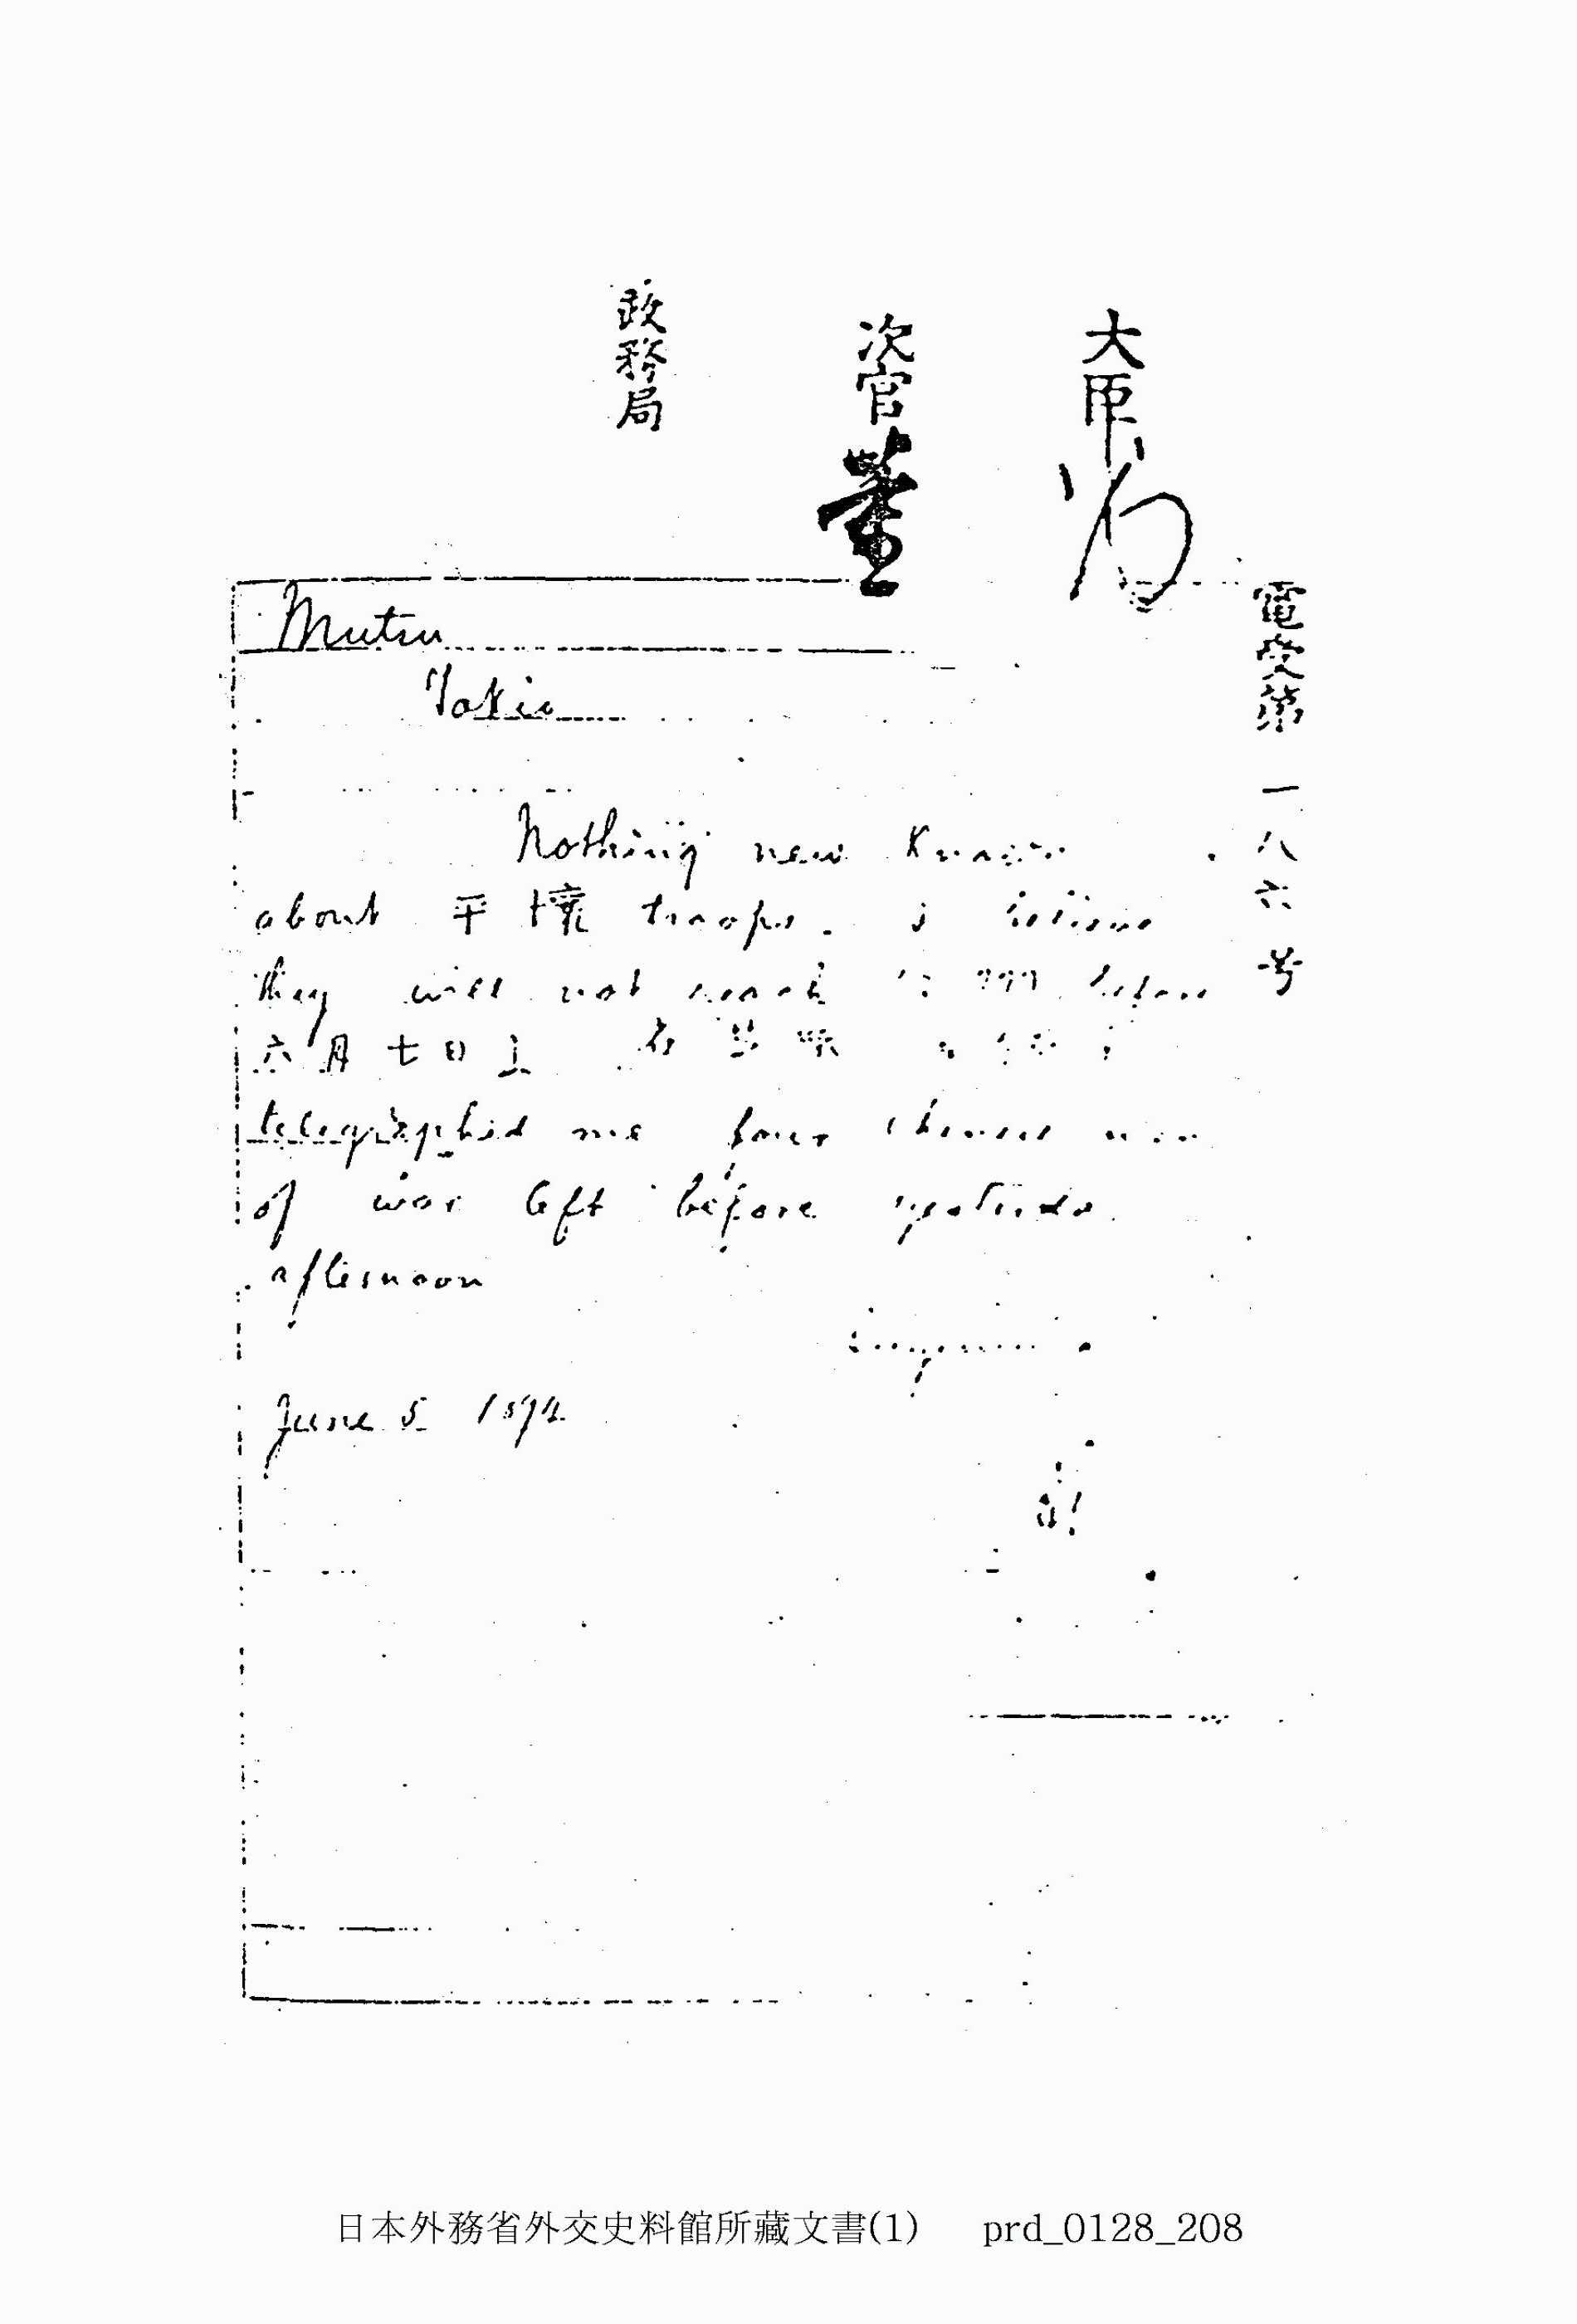 大臣
次官 董
政務局
電受第一八六号
Mutsu
Tokio
Nothing new known
about 平壤 troops. i believe
they will not reach before
六月七日
telegraphed me four chinese men
of war left before yesterda
afternoon
June 5 1894
日本外務省外交史料館所藏文書(1) prd_0128_208